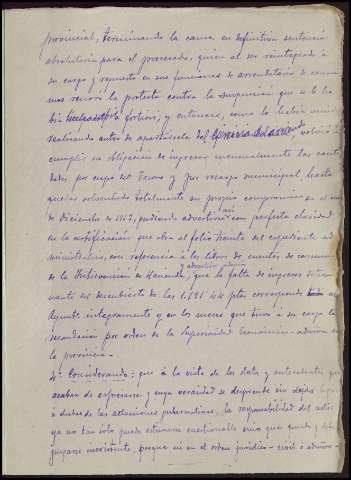 provincial, terminando la causa en definitiva sentencia
absolutoria para el procesado, quien al ser reintegrado á
su cargo y repuesto en sus funciones de arrendatario de consu-
mos renovó la protesta contra la suspensión que se le ha-
bía á fortiori, y entonces, como lo había venido
realizando antes de apartársele del volvió á
cumplir su obligación de ingresar mensualmente las canti-
dades por cupo del Tesoro y por recargo municipal, hasta
quedar solventado totalmente su propio compromiso en el mes
de diciembre de pudiendo advertirse casi con perfecta claridad
en la certificación que obra al folio treinta del expediente ad-
ministrativo, con referencia á los libros de cuentas de consumos
de la Intervención de Hacienda, que la falta de ingresos deter-
minante del descubierto de las ptas corresponde al
Ayunt. integramente y en los meses que tuvo á su cargo la
recaudación por orden de la Superioridad Económico-admva de
la provincia.-
4º Considerando: que á la vista de los datos y antecedentes que
acaban de expresarse y cuya veracidad se desprende sin dejar lugar
á dudas de las actuaciones gubernativas, la responsabilidad del actor
ya no tan solo puede estimarse cuestionable sino que queda y debe
juzgarse inexistente, porque ni en el orden jurídico-civil ó admvo-